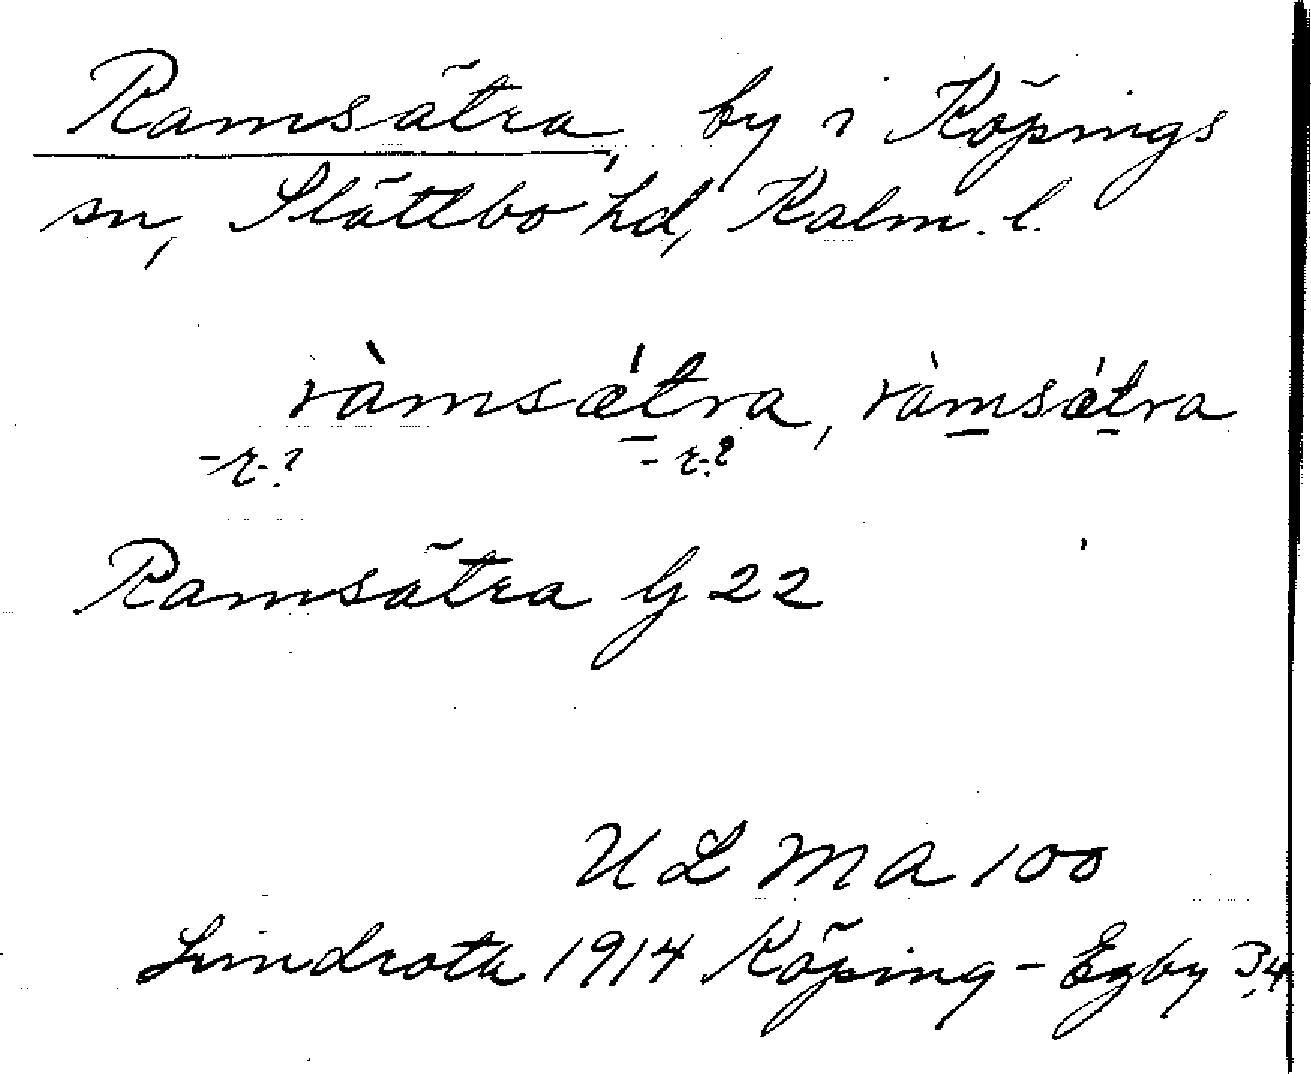 Ramsätra, by i Köpings
sn, Slättbo hd, Kalm. l.
ràmsǽtra, ràmsǽtra
-r-? -r-?
Ramsätra G 22
ULMA 100
Lindroth 1914 Köping - Egby 34